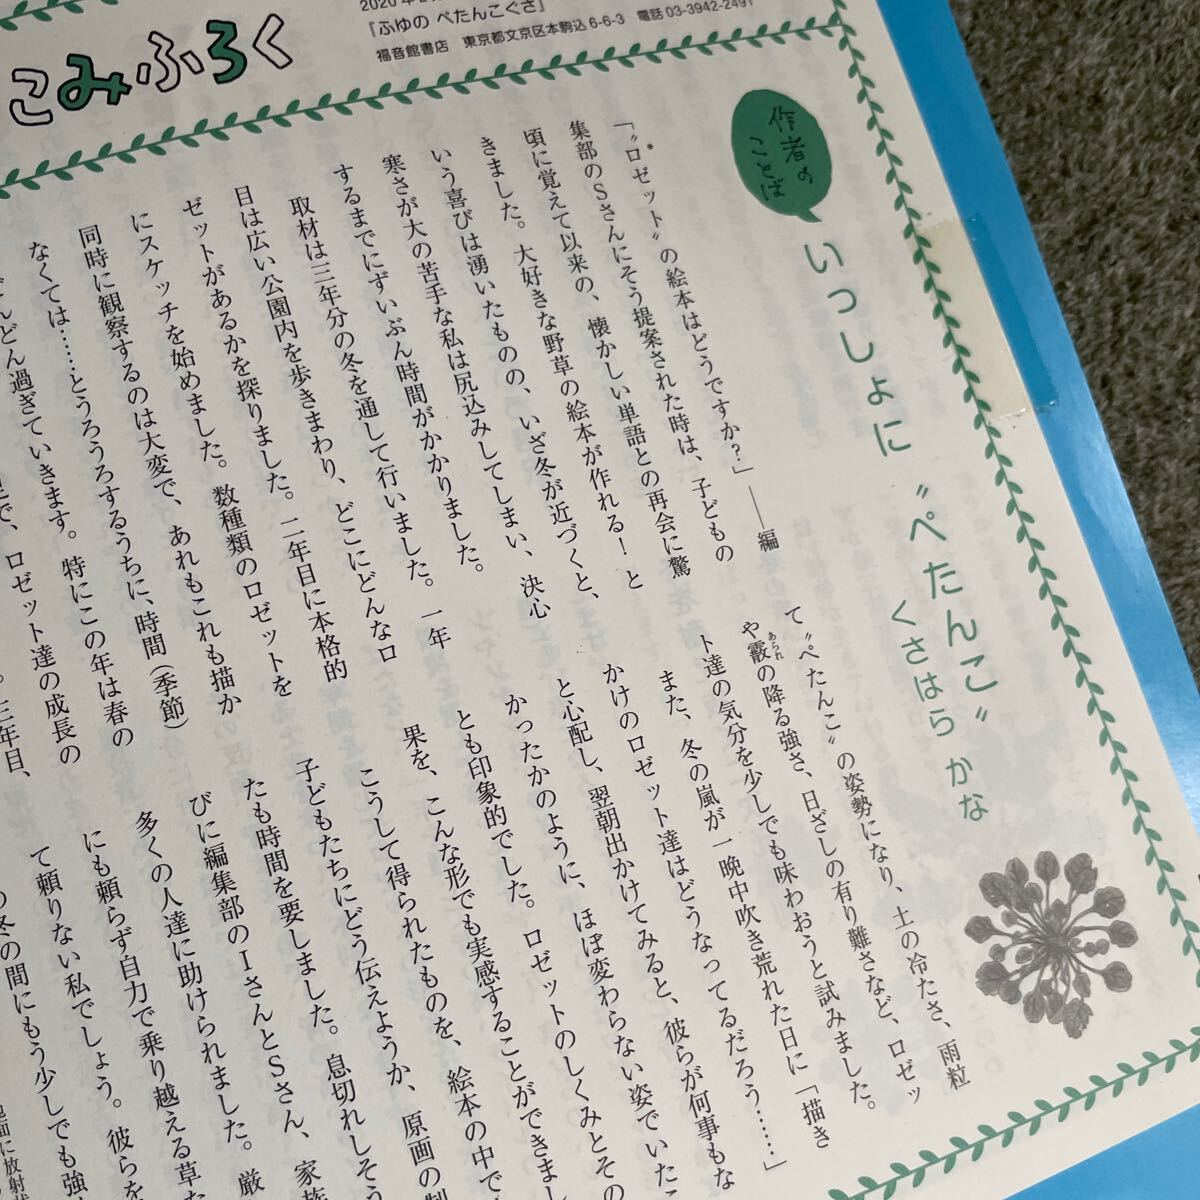 こみふろく
『ふゆの ぺたんこぐさ』
福音館書店 東京都文京区本駒込6-6-3 電話 03-3942-2491
作者の
ことば
いっしょに〝ぺたんこ〟
くさはら かな
「〝ロゼット〟の絵本はどうですか?」――編
集部のSさんにそう提案された時は、子どもの
頃に覚えて以来の、懐かしい単語との再会に驚
きました。大好きな野草の絵本が作れる! と
いう喜びは湧いたものの、いざ冬が近づくと、
寒さが大の苦手な私は尻込みしてしまい、決心
するまでにずいぶん時間がかかりました。
取材は三年分の冬を通して行いました。一年
目は広い公園内を歩きまわり、どこにどんなロ
ゼットがあるかを探りました。二年目に本格的
にスケッチを始めました。数種類のロゼットを
同時に観察するのは大変で、あれもこれも描か
なくては……とうろうろするうちに、時間(季節)
どんどん過ぎていきます。特にこの年は春の
で、ロゼット達の成長の
三年目、
て〝ぺたんこ〟の姿勢になり、土の冷たさ、雨粒
や霰の降る強さ、日ざしの有り難さなど、ロゼッ
あられ
ト達の気分を少しでも味わおうと試みました。
また、冬の嵐が一晩中吹き荒れた日に「描き
かけのロゼット達はどうなってるだろう……」
と心配し、翌朝出かけてみると、彼らが何事もな
かったかのように、ほぼ変わらない姿でいたこ
とも印象的でした。ロゼットのしくみとその
果を、こんな形でも実感することができまし
こうして得られたものを、絵本の中で
子どもたちにどう伝えようか、原画の制
たも時間を要しました。息切れしそう
びに編集部のIさんとSさん、家族
多くの人達に助けられました。厳
にも頼らず自力で乗り越える草た
て頼りない私でしょう。彼らを
の冬の間にもう少しでも強
地面に放射状